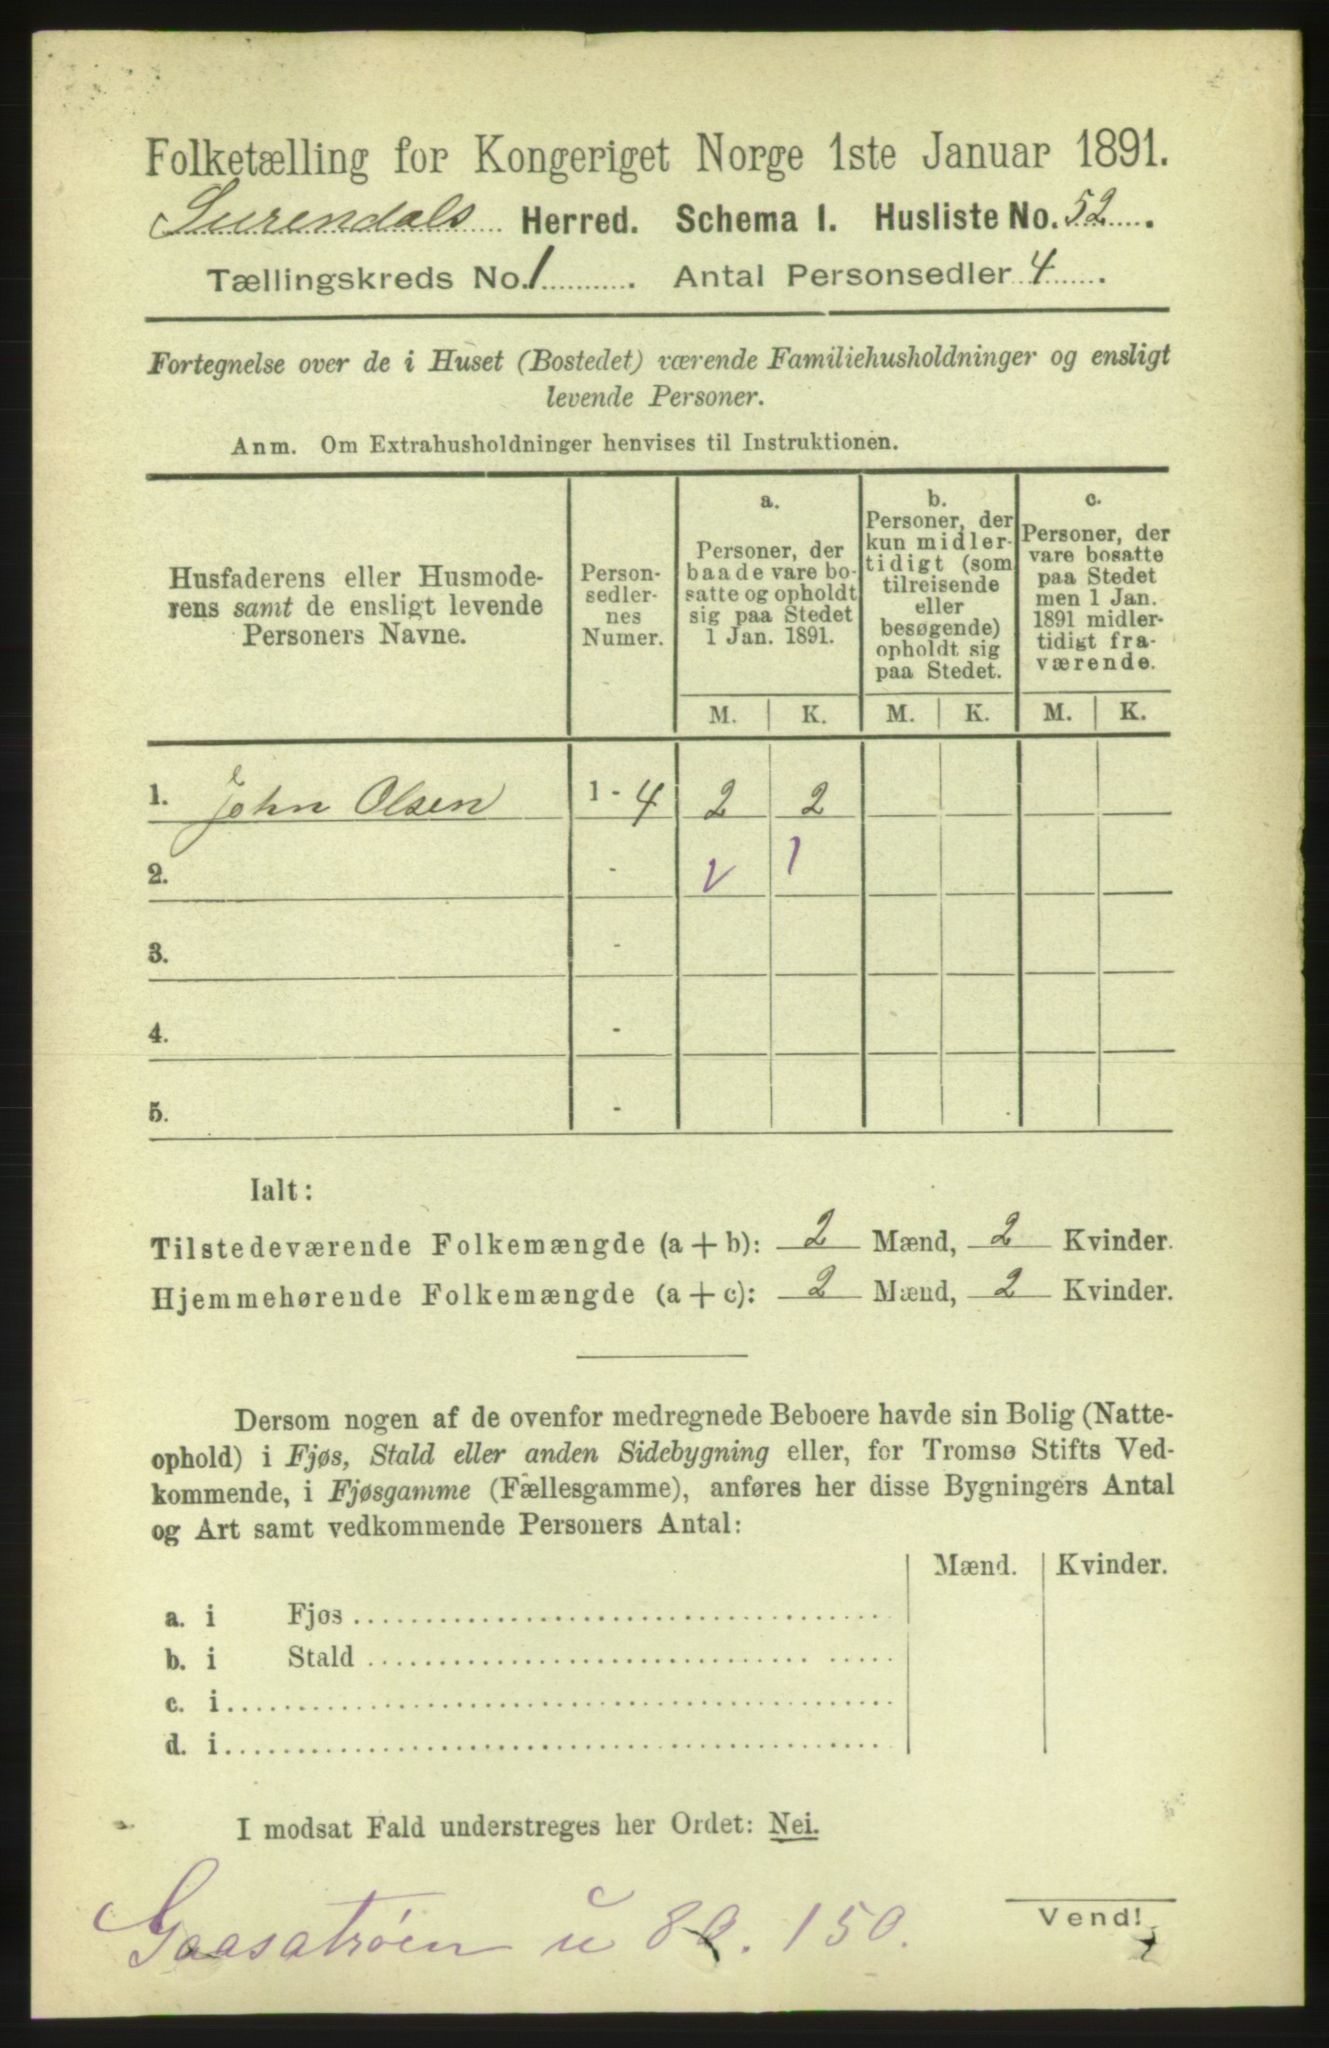 Folketælling for Kongeriget Norge 1ste Januar 1891.
Surendals Herred. Schema I. Husliste No. 52.
Tællingskreds No. 1. Antal Personsedler 4.
Fortegnelse over de i Huset (Bostedet) værende Familiehusholdninger og ensligt
levende Personer.
Anm. Om Extrahusholdninger henvises til Instruktionen.
Husfaderens eller Husmode-
rens samt de ensligt levende
Personers Navne.
Person-
sedler-
nes
Numer.
a.
Personer, der
baade vare bo-
satte og opholdt
sig paa Stedet
1 Jan. 1891.
b.
Personer, der
kun midler-
tidigt (som
tilreisende
eller
besøgende)
opholdt sig
paa Stedet.
c.
Personer, der
vare bosatte
paa Stedet
men 1 Jan.
1891 midler-
tidigt fra-
værende.
M. K. M. K. M. K.
1. John Olsen 1 - 4 2 2
2. - v 1
3. -
4. -
5. -
Ialt:
Tilstedeværende Folkemængde (a + b): 2 Mænd, 2 Kvinder.
Hjemmehørende Folkemængde (a + c): 2 Mænd, 2 Kvinder.
Dersom nogen af de ovenfor medregnede Beboere havde sin Bolig (Natte-
ophold) i Fjøs, Stald eller anden Sidebygning eller, for Tromsø Stifts Ved-
kommende, i Fjøsgamme (Fællesgamme), anføres her disse Bygningers Antal
og Art samt vedkommende Personers Antal:
Mænd. Kvinder.
a. i Fjøs
b. i Stald
c. i
d. i
I modsat Fald understreges her Ordet: Nei.
Vend!
Gaasatrøen u 89. 150.